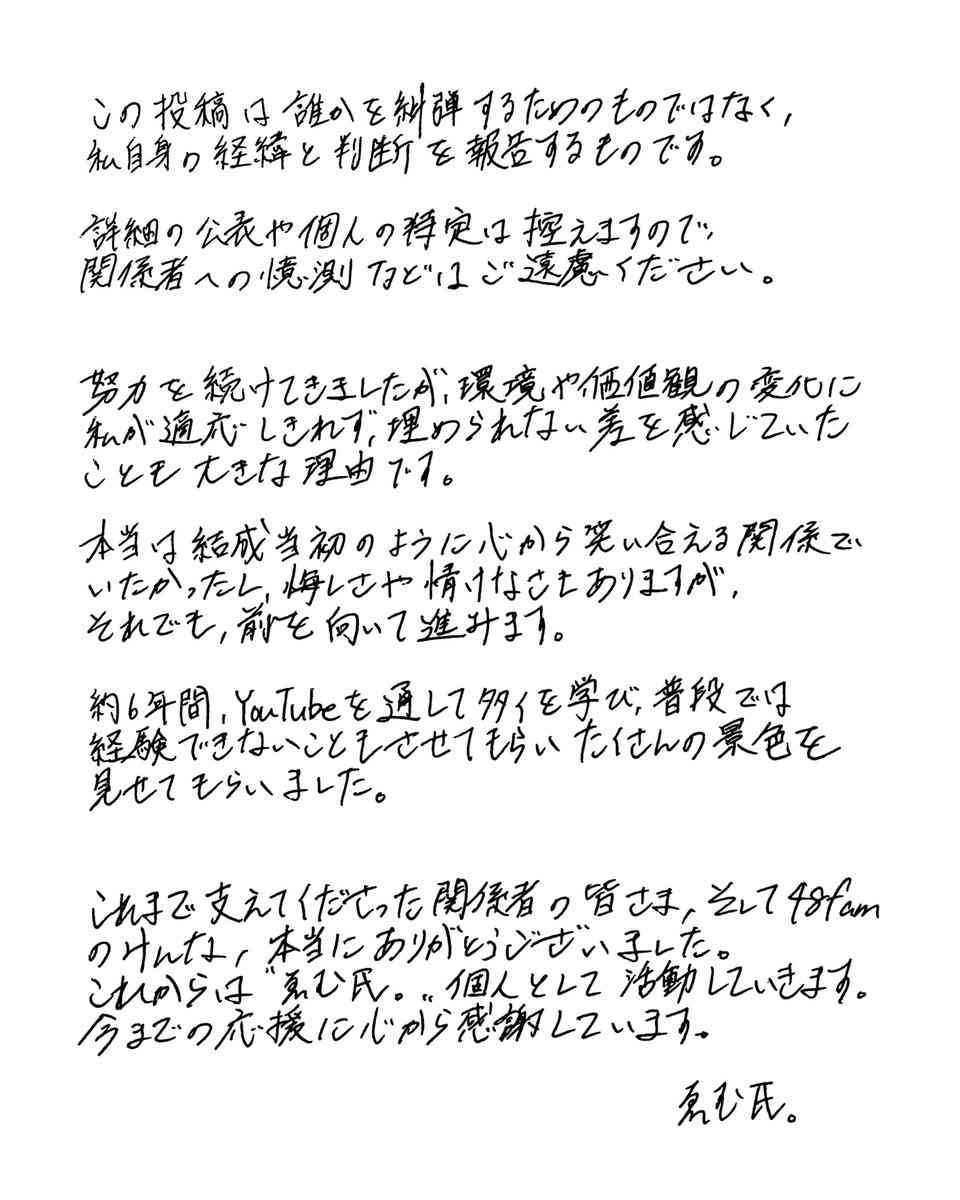 この投稿は誰かを糾弾するためのものではなく,
私自身の経緯と判断を報告するものです。
詳細の公表や個人の特定は控えますので,
関係者への憶測などはご遠慮ください。
努力を続けてきましたが,環境や価値観の変化に
私が適応しきれず,埋められない差を感じていた
ことも大きな理由です。
本当は結成当初のように心から笑い合える関係で
いたかったし,悔しさや情けなさもありますが,
それでも,前を向いて進みます。
約6年間,YouTubeを通して多くを学び,普段では
経験できないこともさせてもらいたくさんの景色を
見せてもらいました。
これまで支えてくださった関係者の皆さま,そして48fam
のみんな,本当にありがとうございました。
これからは"恵む氏。"個人として活動していきます。
今までの応援に心から感謝しています。
恵む氏。